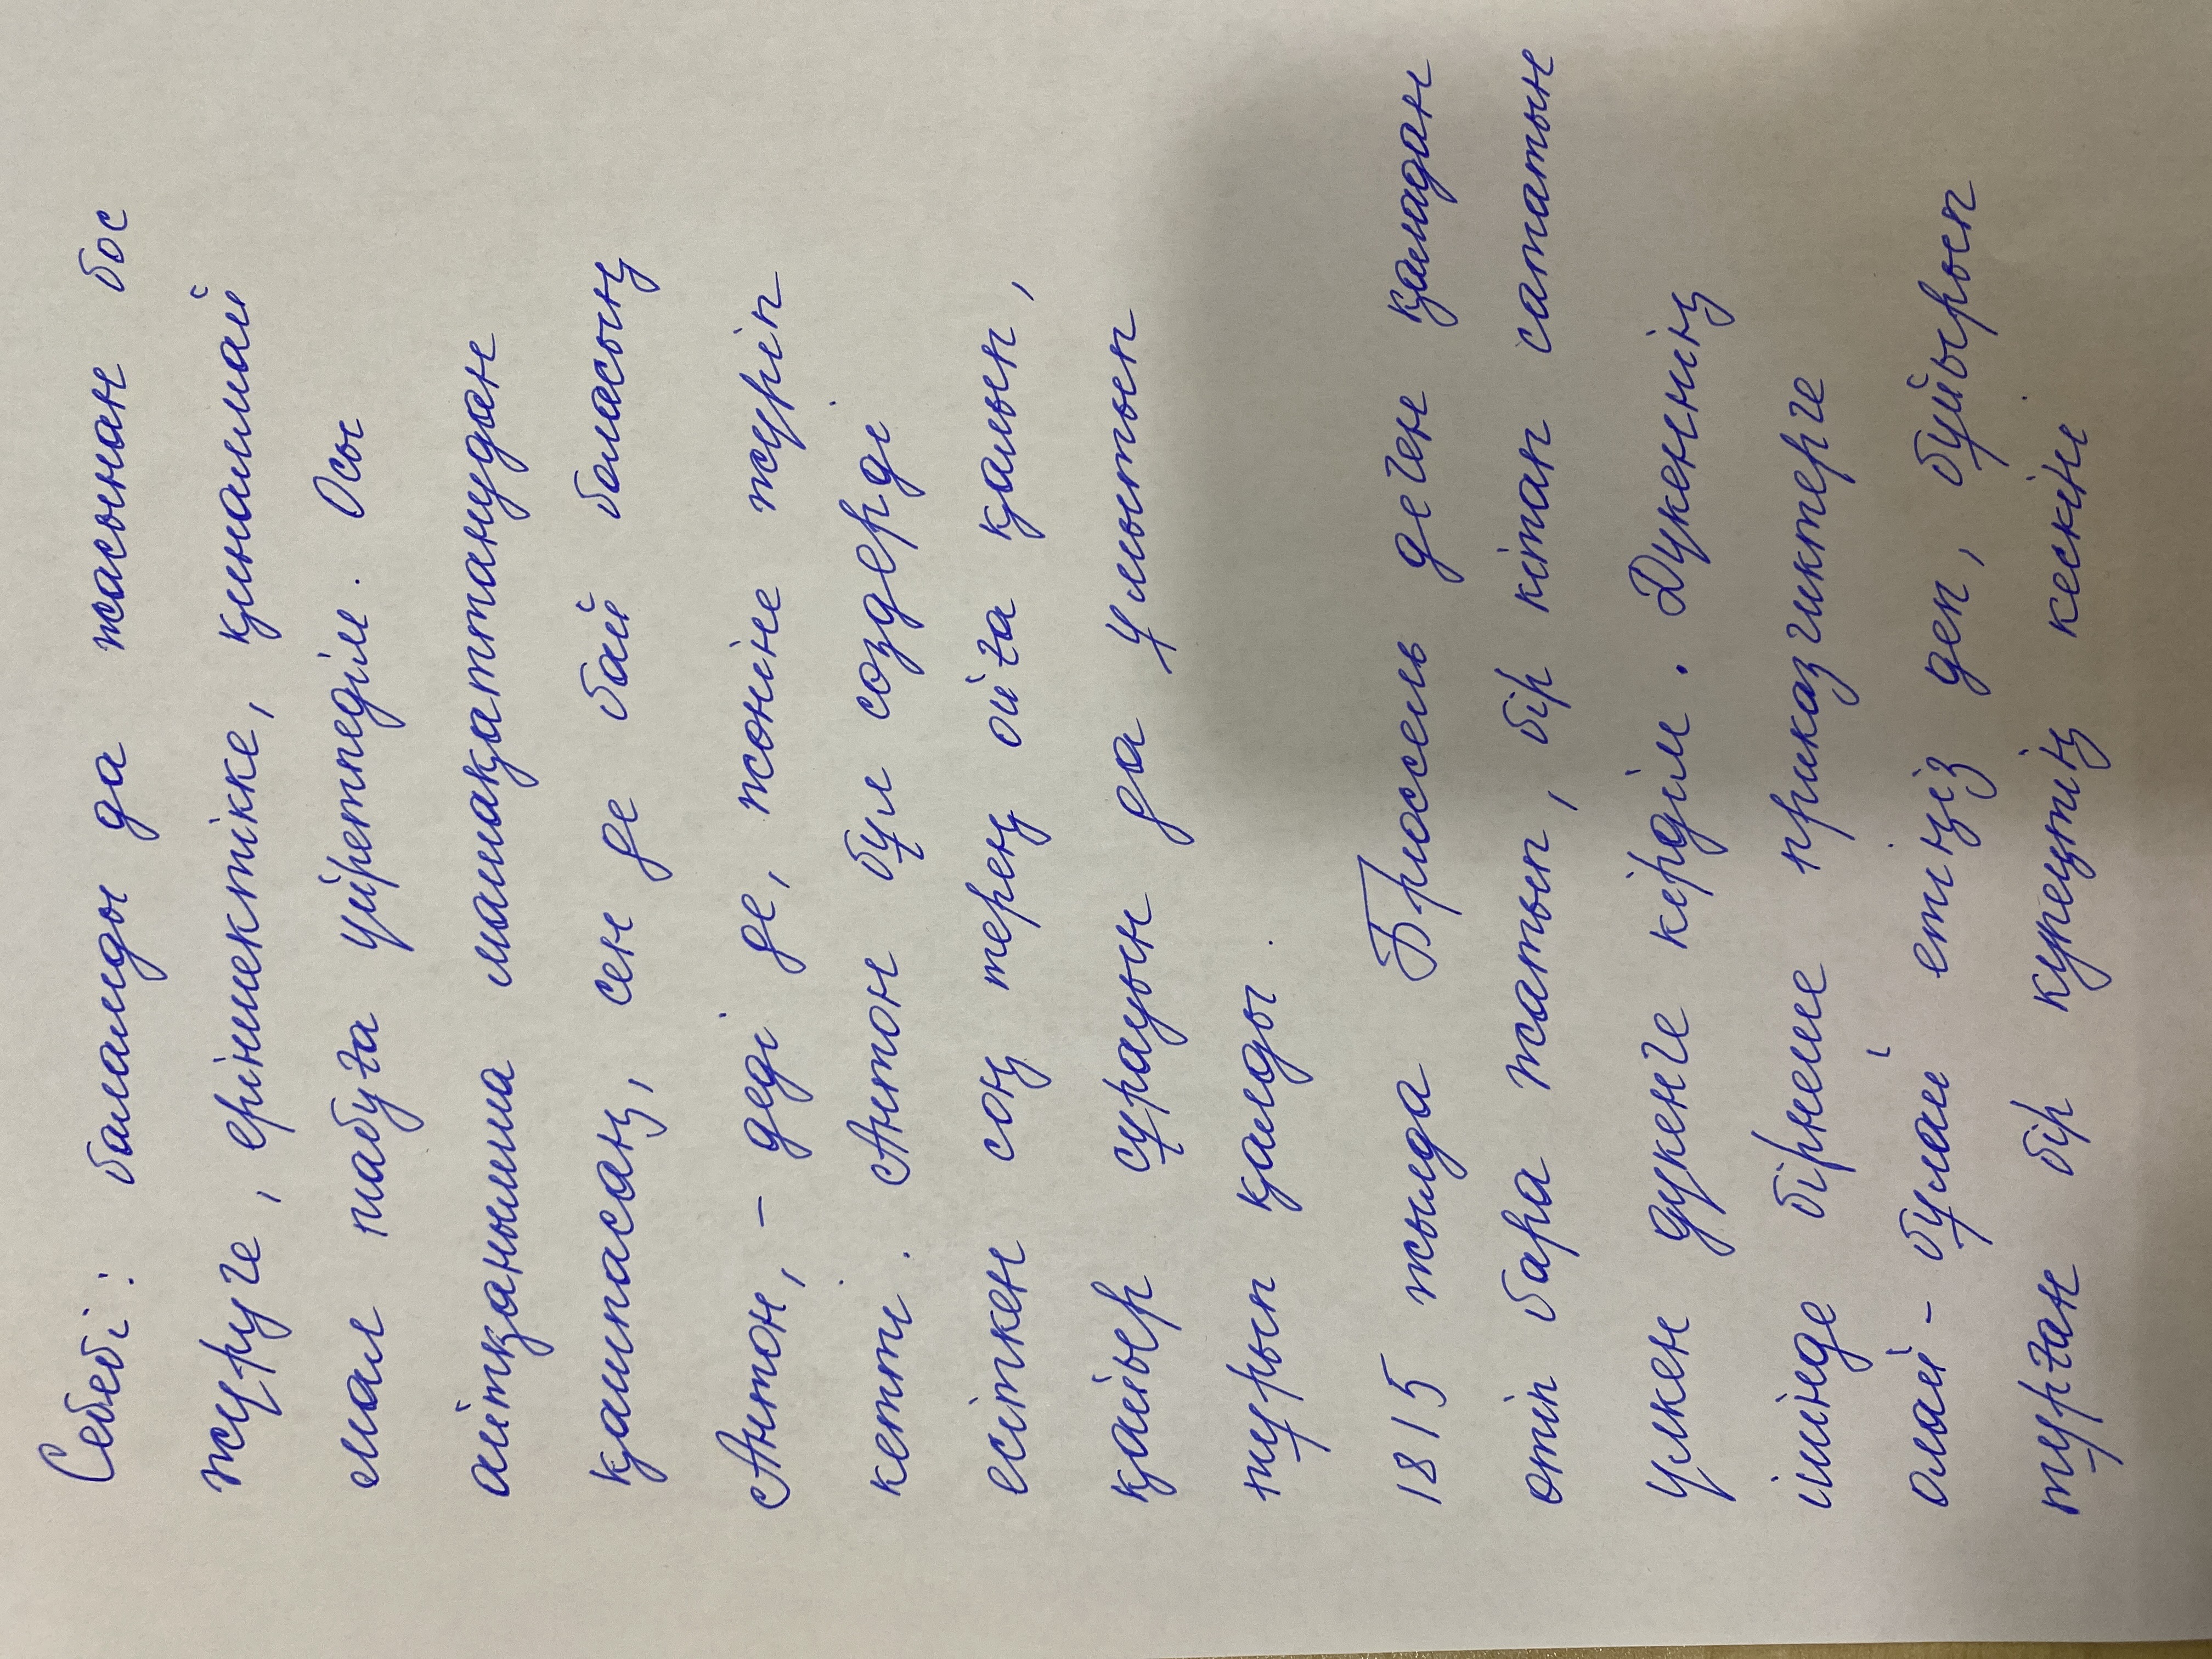 Себебі: баламды да жасынан бос
жүруге, еріншектікке, қиналмай
мал табуға үйретпедім. Осы
айтқанымша машақаттанудан
қашпасаң, сен де бай боласың
Антон, - деді де, жөніне жүріп
кетті. Антон бұл сөздерді
есіткен соң терең ойға қалып,
қайыр сұрауын да ұмытып
тұрып қалды.
1815 жылда Брюссель деген қаладан
өтіп бара жатып, бір кітап сататын
үлкен дүкенге кірдім. Дүкеннің
ішінде бірнеше приказчиктерге
олай - бұлай етіңіз деп, бұйырып
тұрған бір купецтің кескіні